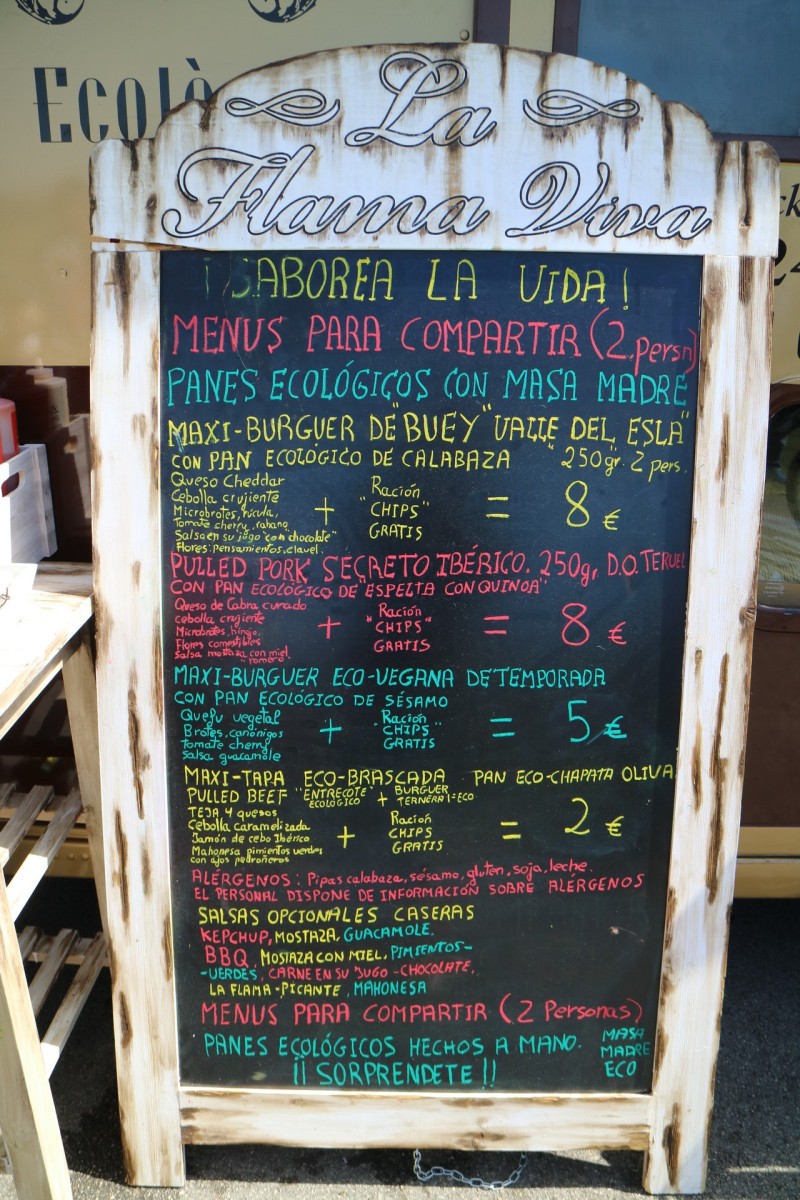 Ecolò
La
Flama Viva
¡SABOREA LA VIDA!
MENUS PARA COMPARTIR (2.persn)
PANES ECOLÓGICOS CON MASA MADRE
MAXI-BURGUER DE "BUEY" VALLE DEL ESLA"
CON PAN ECOLÓGICO DE CALABAZA "250gr. 2 pers.
Queso Cheddar
Cebolla crujiente
Microbrotes, rúcula,
Tomate cherry, rabano
Salsa en su jugo "con chocolate"
Flores: pensamientos, clavel.
+ Ración "CHIPS" GRATIS = 8 €
PULLED PORK SECRETO IBÉRICO. 250gr. D.O. TERUEL
CON PAN ECOLÓGICO DE "ESPELTA CON QUINOA"
Queso de Cabra curado
cebolla crujiente
Microbrotes, hinojo,
Flores comestibles
Salsa mostaza con miel
"romero"
+ Ración "CHIPS" GRATIS = 8 €
MAXI-BURGUER ECO-VEGANA DE TEMPORADA
CON PAN ECOLÓGICO DE SÉSAMO
Quefu vegetal
Brotes, canónigos
tomate cherry
Salsa guacamole
+ Ración "CHIPS" GRATIS = 5 €
MAXI-TAPA ECO-BRASCADA PAN ECO-CHAPATA OLIVA
PULLED BEEF "ENTRECOTE ECOLÓGICO" + BURGUER TERNERA 1=ECO
TEJA 4 quesos
Cebolla caramelizada
Jamón de cebo Ibérico
Mahonesa pimientos verdes
con ajos pedroñeros
+ Ración CHIPS GRATIS = 2 €
ALÉRGENOS: Pipas calabaza, sésamo, gluten, soja, leche.
EL PERSONAL DISPONE DE INFORMACIÓN SOBRE ALÉRGENOS
SALSAS OPCIONALES CASERAS
KEPCHUP, MOSTAZA, GUACAMOLE.
BBQ, MOSTAZA CON MIEL, PIMIENTOS-
-VERDES, CARNE EN SU JUGO-CHOCOLATE,
LA FLAMA-PICANTE, MAHONESA
MENUS PARA COMPARTIR (2 Personas)
PANES ECOLÓGICOS HECHOS A MANO. MASA
MADRE
ECO
¡¡SORPRENDETE!!